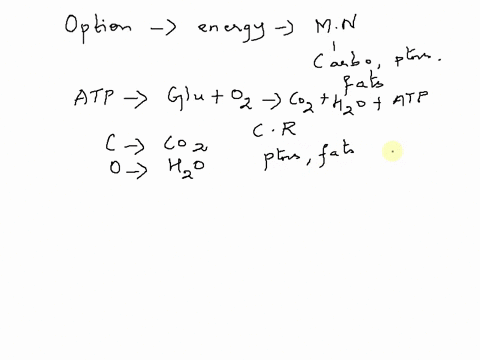 Option -> energy -> M.N
Carbo, ptns.
fats
ATP -> Glu + O2 -> CO2 + H2O + ATP
C.R
C -> CO2
ptns, fats
O -> H2O